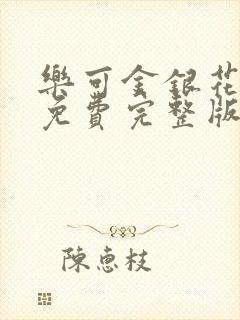 樂可金銀花
免費完整版
陳惠枝